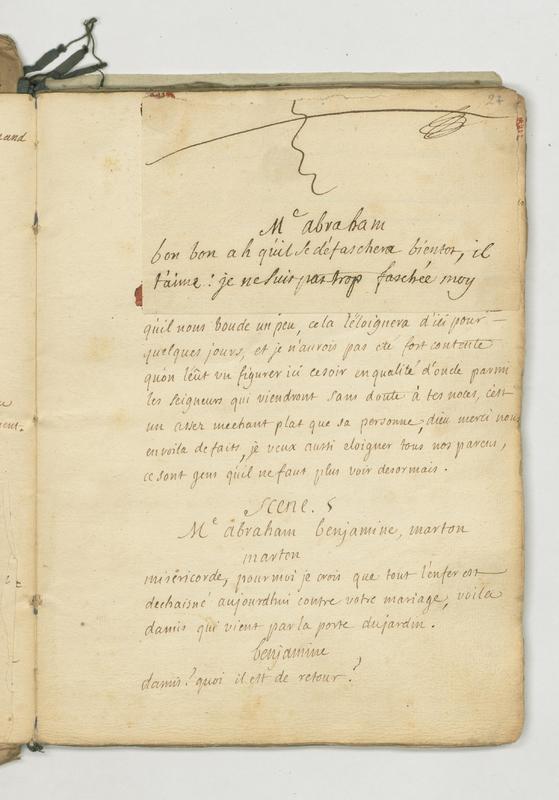 27
Me abraham
bon bon ah qu'il se défaschera bientot, il
t'aime : je ne suis pas trop faschée moy
qu'il nous boude un peu, cela l'éloignera d'ici pour
quelques jours, et je n'aurois pas eté fort contente
qu'on l'eût vu figurer ici ce soir en qualité d'oncle parmi
les seigneurs qui viendront sans doute à tes noces, c'est
un assez mechant plat que sa personne, dieu merci nous
en voila defaits, je veux aussi eloigner tous nos parens,
ce sont gens qu'il ne faut plus voir desormais.
Scene. 5
Me abraham benjamine, marton
marton
miséricorde, pour moi je crois que tout l'enfer est
dechaisné aujourdhui contre votre mariage, voila
damis qui vient par la porte du jardin.
benjamine
damis? quoi il est de retour?